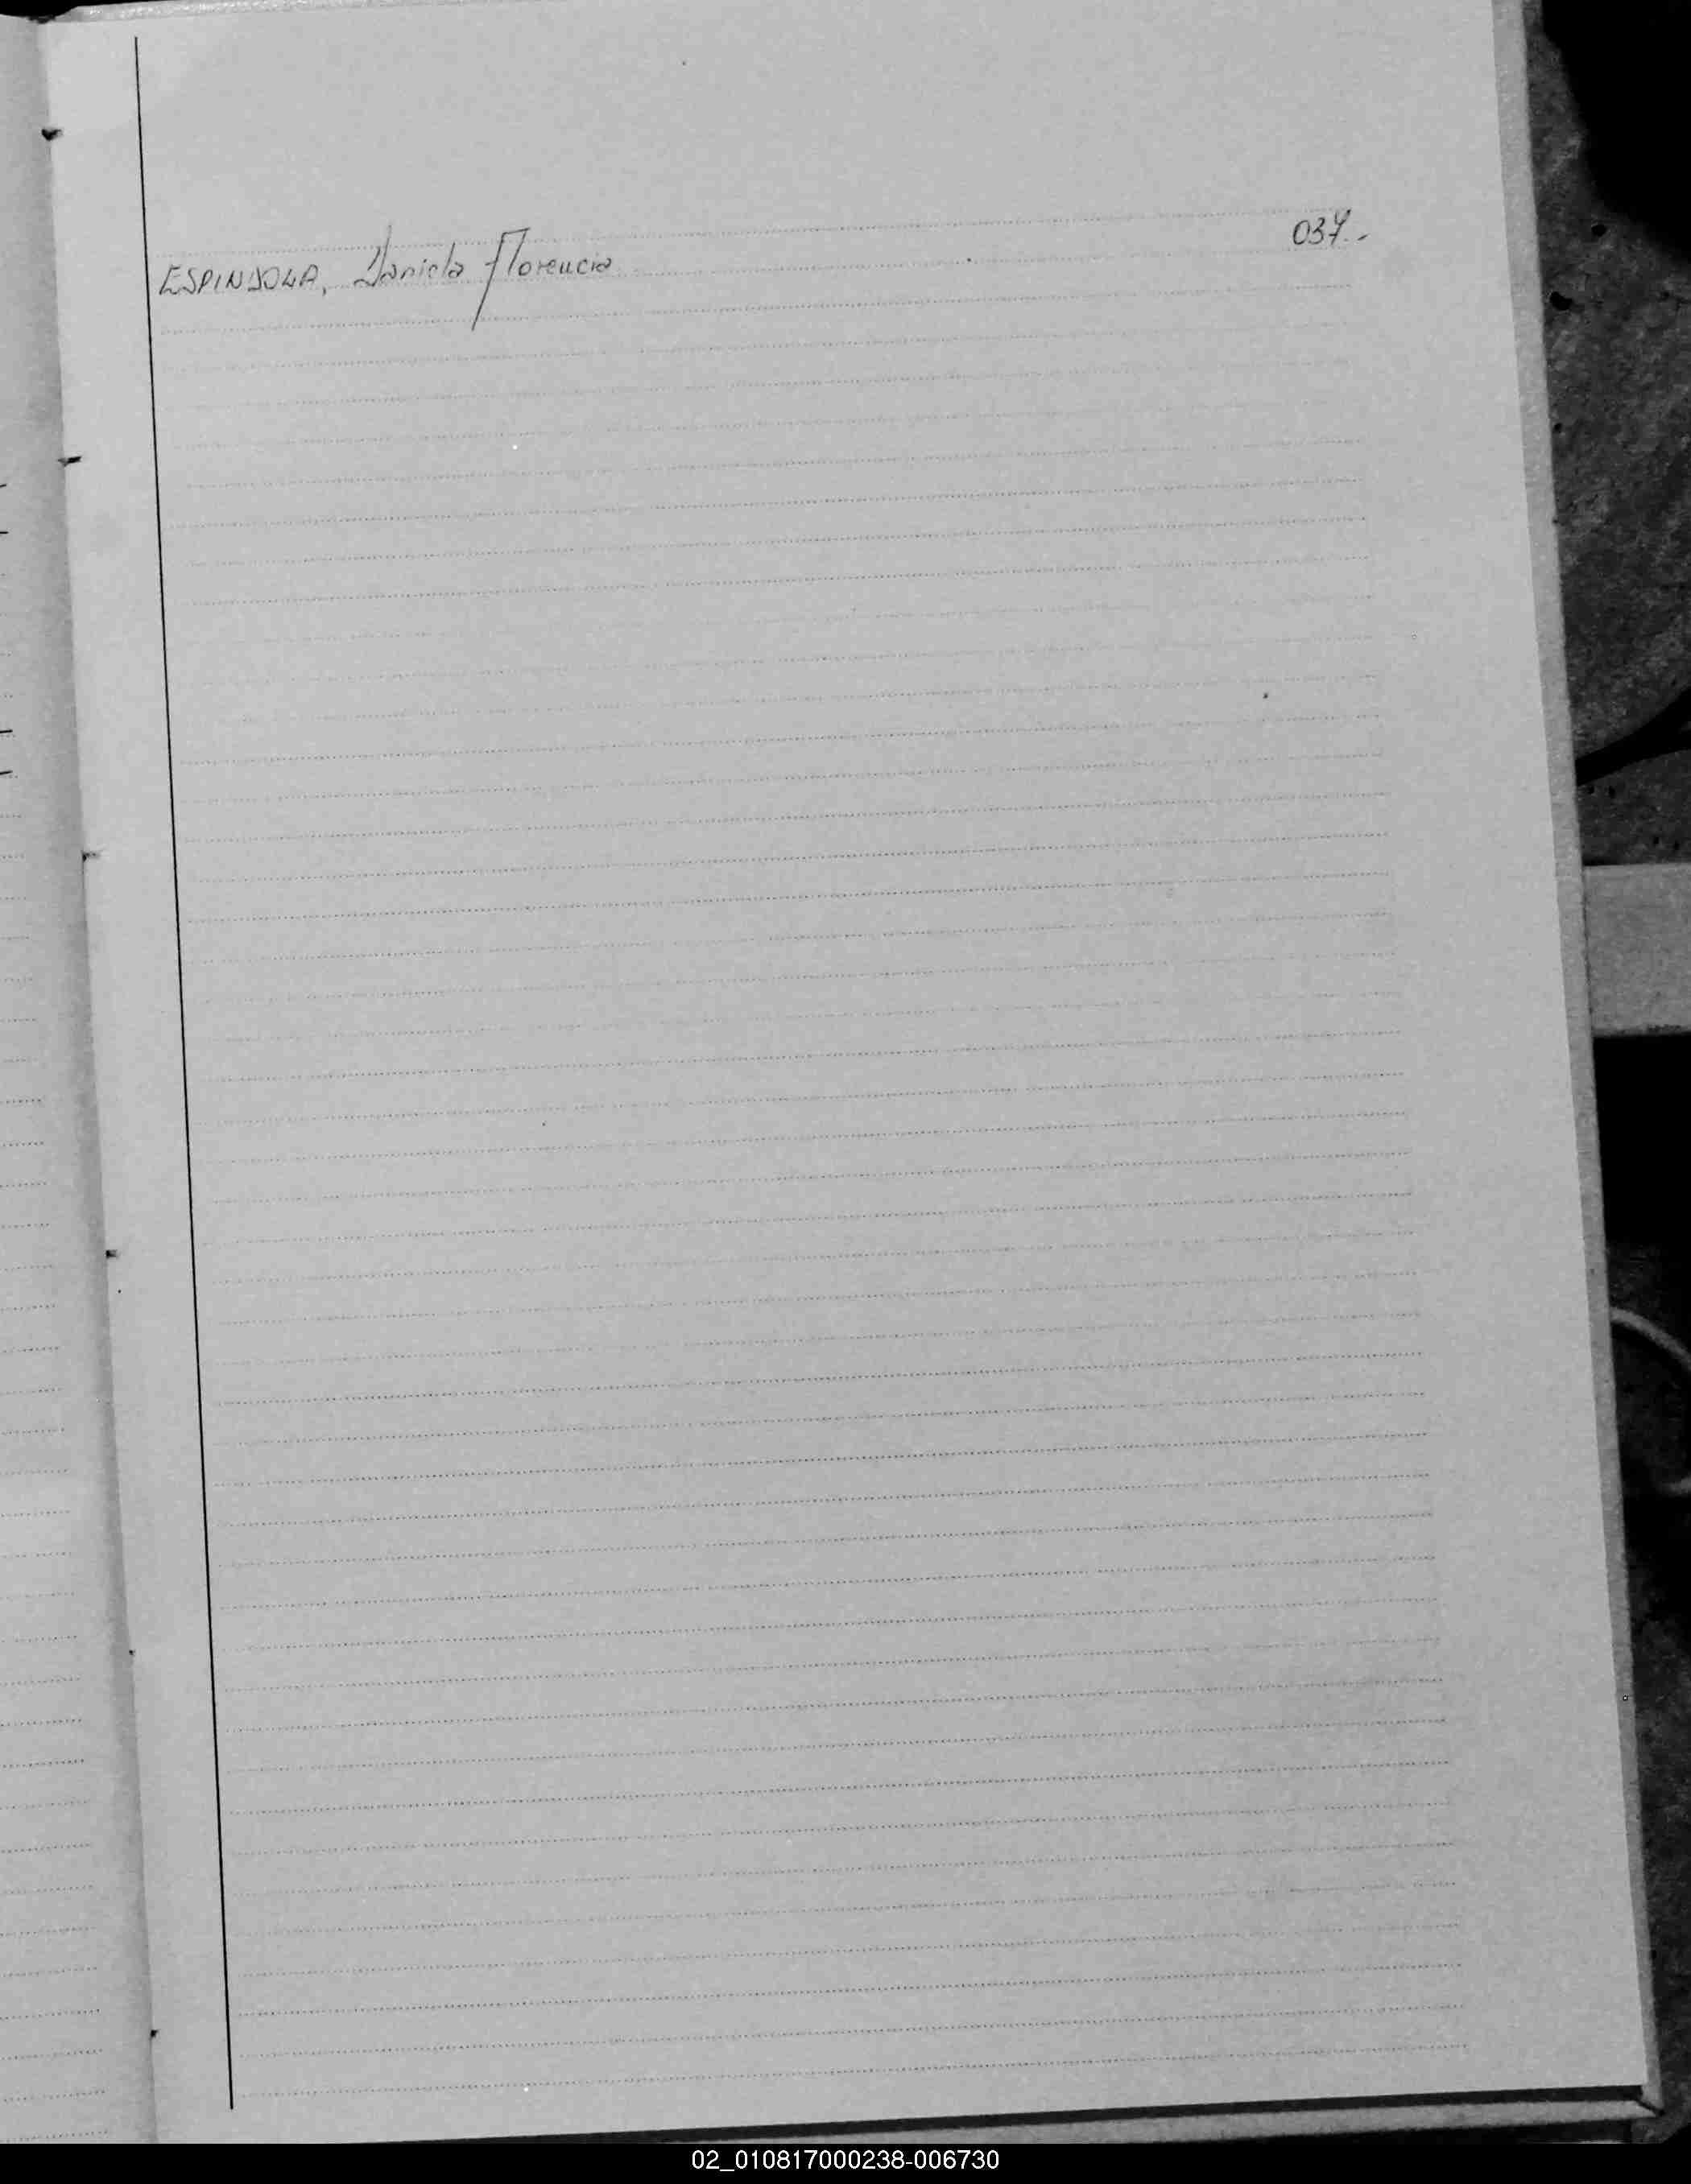 ESPINDOLA, Daniela Florencia 037.-
02_010817000238-006730